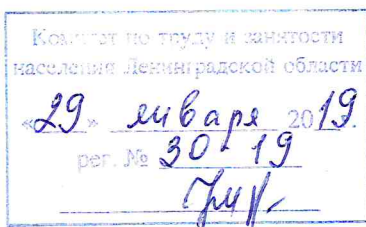 Комитет по труду и занятости
населения Ленинградской области
«29» января 2019.
рег. № 30-19